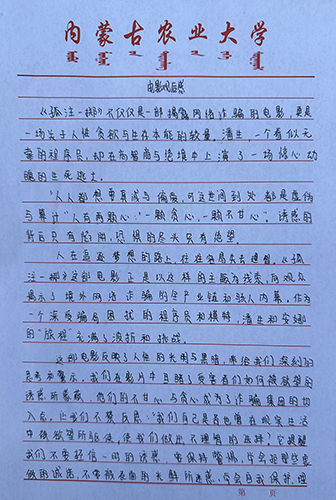 内蒙古农业大学
电影观后感
《孤注一掷》不仅仅是一部揭露网络诈骗的电影，更是
一场关于人性贪欲与生存本能的较量。潘生，一个看似无
辜的程序员，却在高智商与绝境中上演了一场惊心动
魄的生死逃亡。
"人人都想要真诚与偏爱，可这世间到处都是虚伪
与算计""人有两颗心：一颗贪心，一颗不甘心"，诱惑的
背后只有陷阱，恐惧的尽头只有绝望。
人在追逐梦想的路上，往往容易失去理智，《孤
注一掷》这部电影正是以这样的主题为线索，向观众
揭示了境外网络诈骗的全产业链和骇人内幕，作为
一个深度骗局困扰的程序员和模特，潘生和安娜
的"旅程"充满了波折和挑战。
这部电影反映了人性的光明与黑暗，带给我们深刻的
思考和警示，我们在影片中目睹了受害者们如何被欲望的
诱惑所蒙蔽，他们的不甘心与贪心成为了诈骗集团的切
入点，让我们不禁反思："我们自己是否也曾在现实生活
中被欲望所驱使，使我们做出不理智的选择？它提醒
我们不要轻信一切的诱惑，要保持警惕，学会拒绝些虚
假的诚意，不要被表面的光鲜所迷惑，学会自我保护，理
第 页